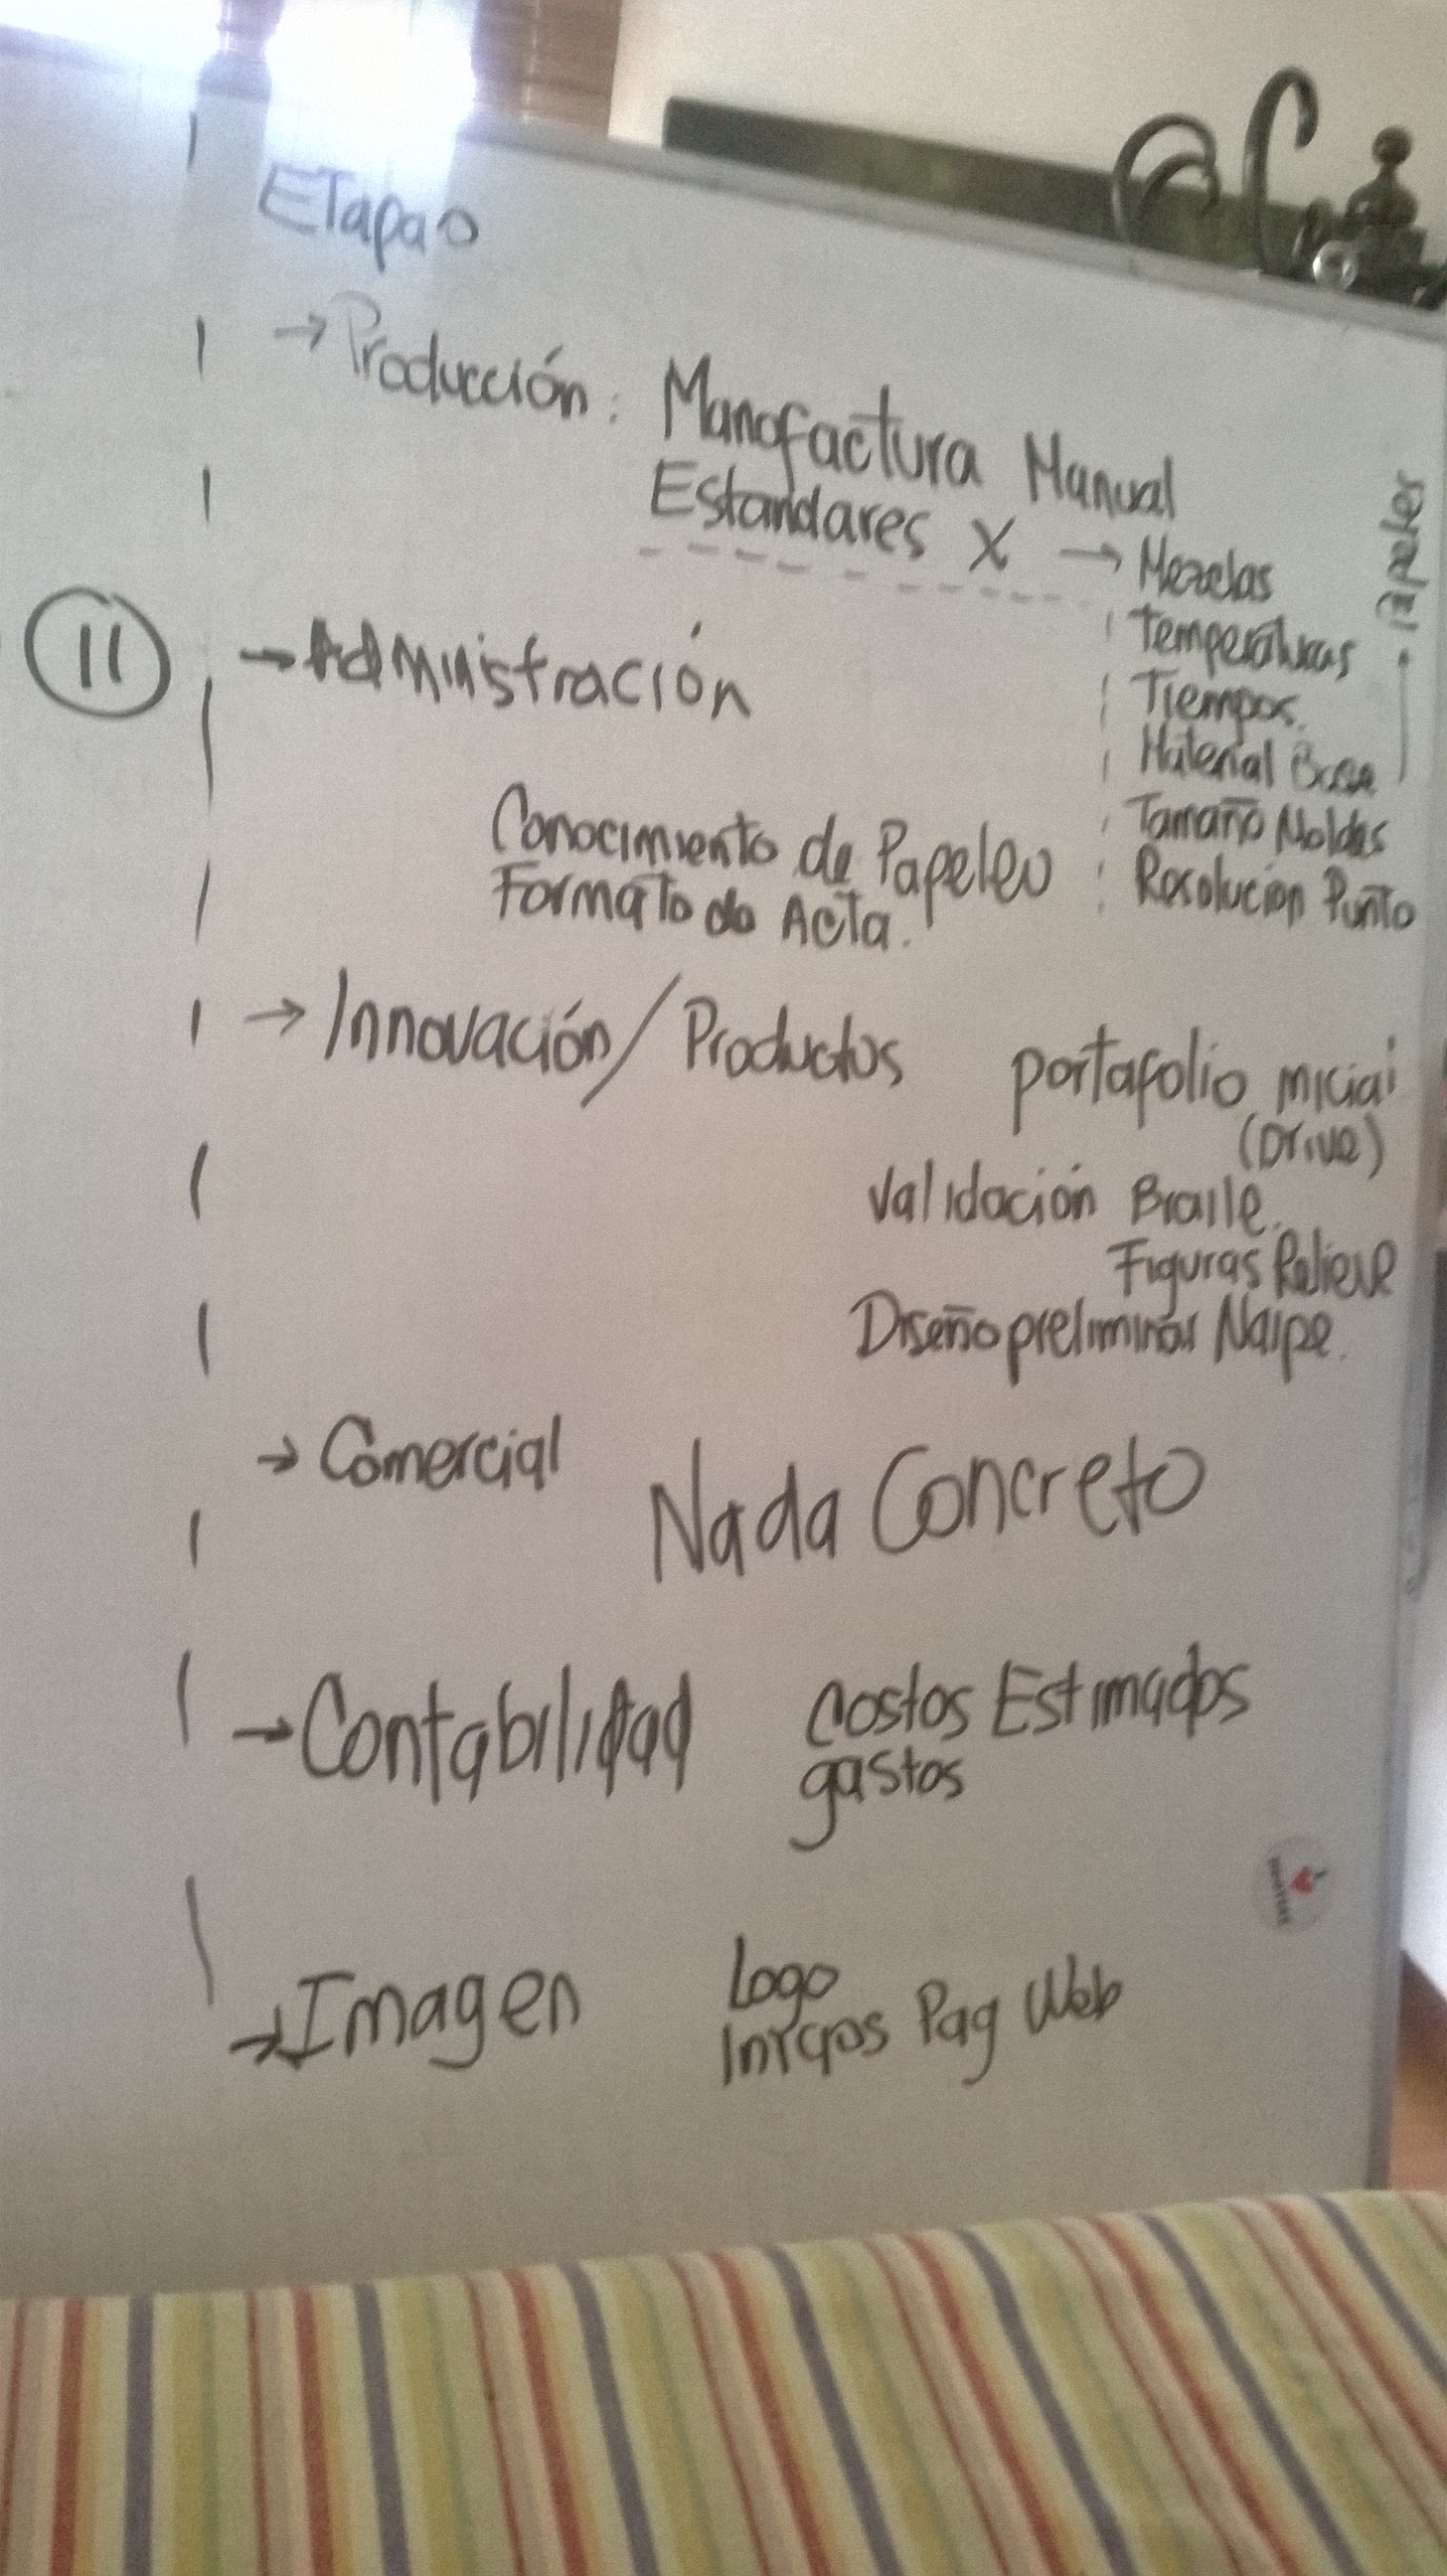 Etapas
→ Producción: Manofactura Manual
Estandares X → Mezclas
Temperaturas
Tiempos.
Material Base
Tamaño Moldes
Resolucion Punto
11
→ Administración
Conocimiento de Papeleo
Formato de Acta.
→ Innovación/Productos portafolio inicial
(Drive)
Validación Braile.
Figuras Relieve
Diseño preliminar Naipe.
→ Comercial Nada Concreto
→ Contabilidad Costos Estimados
gastos
→ Imagen Logo
Inicios Pag Web